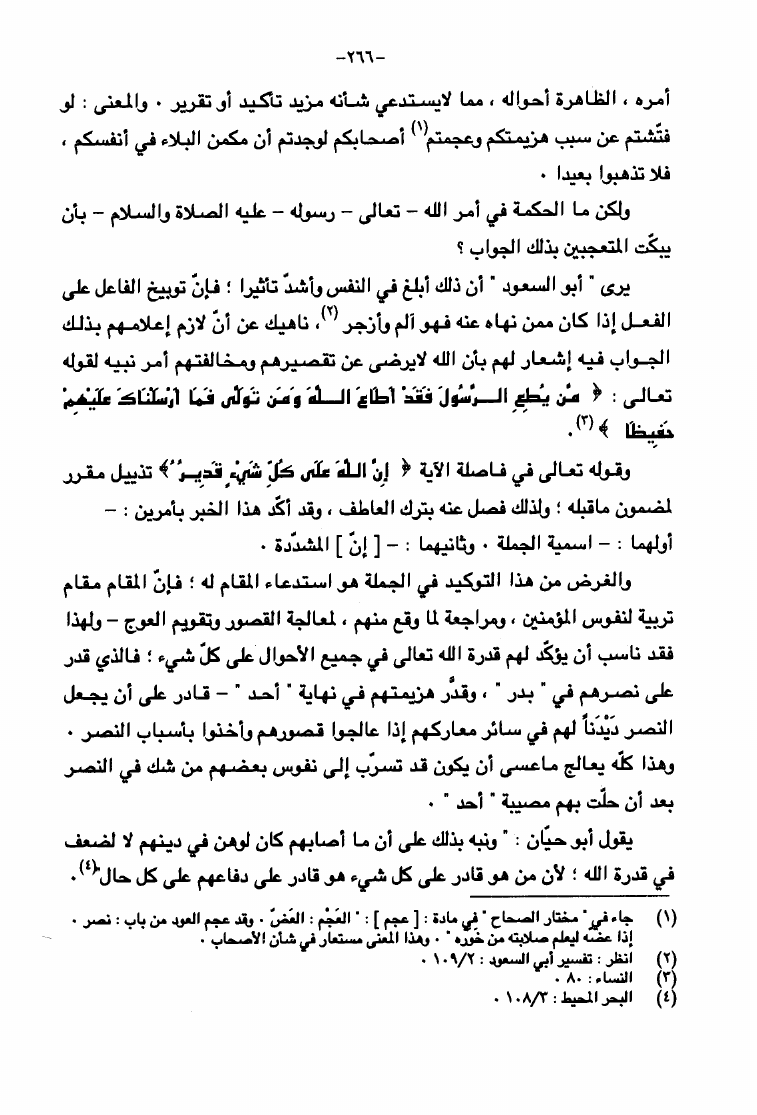 -٢٦٦-
أمره ، الظاهرة أحواله ، مما لايستدعي شأنه مزيد تأكيد أو تقرير . والمعنى : لو
فتّشتم عن سبب هزيمتكم وعجمتم(١) أصحابكم لوجدتم أن مكمن البلاء في أنفسكم ،
فلا تذهبوا بعيدا .
ولكن ما الحكمة في أمر الله – تعالى – رسوله – عليه الصلاة والسلام – بأن
يبكّت المتعجبين بذلك الجواب ؟
يرى " أبو السعود " أن ذلك أبلغ في النفس وأشدّ تأثيرا ؛ فإنّ توبيخ الفاعل على
الفعل إذا كان ممن نهاه عنه فهو آلم وأزجر(٢)، ناهيك عن أنّ لازم إعلامهم بذلك
الجواب فيه إشعار لهم بأن الله لايرضى عن تقصيرهم ومخالفتهم أمر نبيه لقوله
تعالى : ﴿ مَّن يُطِعِ الرَّسُولَ فَقَدْ أَطَاعَ اللَّهَ وَمَن تَوَلَّى فَمَا أَرْسَلْنَاكَ عَلَيْهِمْ
حَفِيظًا ﴾(٣).
وقوله تعالى في فاصلة الآية ﴿ إِنَّ اللَّهَ عَلَى كُلِّ شَيْءٍ قَدِيرٌ ﴾ تذييل مقرر
لمضمون ماقبله ؛ ولذلك فصل عنه بترك العاطف ، وقد أكّد هذا الخبر بأمرين : –
أولهما : – اسمية الجملة . وثانيهما : – [ إنّ ] المشدّدة .
والغرض من هذا التوكيد في الجملة هو استدعاء المقام له ؛ فإنّ المقام مقام
تربية لنفوس المؤمنين ، ومراجعة لما وقع منهم ، لمعالجة القصور وتقويم العوج – ولهذا
فقد ناسب أن يؤكّد لهم قدرة الله تعالى في جميع الأحوال على كلّ شيء ؛ فالذي قدر
على نصرهم في " بدر " ، وقدَّر هزيمتهم في نهاية " أحد " – قادر على أن يجعل
النصر دَيْدَناً لهم في سائر معاركهم إذا عالجوا قصورهم وأخذوا بأسباب النصر .
وهذا كلّه يعالج ماعسى أن يكون قد تسرّب إلى نفوس بعضهم من شك في النصر
بعد أن حلّت بهم مصيبة " أحد " .
يقول أبو حيّان : " ونبه بذلك على أن ما أصابهم كان لوهن في دينهم لا لضعف
في قدرة الله ؛ لأن من هو قادر على كل شيء هو قادر على دفاعهم على كل حال"(٤).
(١) جاء في " مختار الصحاح " في مادة : [ عجم ] : " العَجْم : العَضّ . وقد عجم العود من باب : نصر .
إذا عضّه ليعلم صلابته من خَوَره " . وهذا المعنى مستعار في شأن الأصحاب .
(٢) انظر : تفسير أبي السعود : ١٠٩/٢ .
(٣) النساء : ٨٠ .
(٤) البحر المحيط : ١٠٨/٣ .